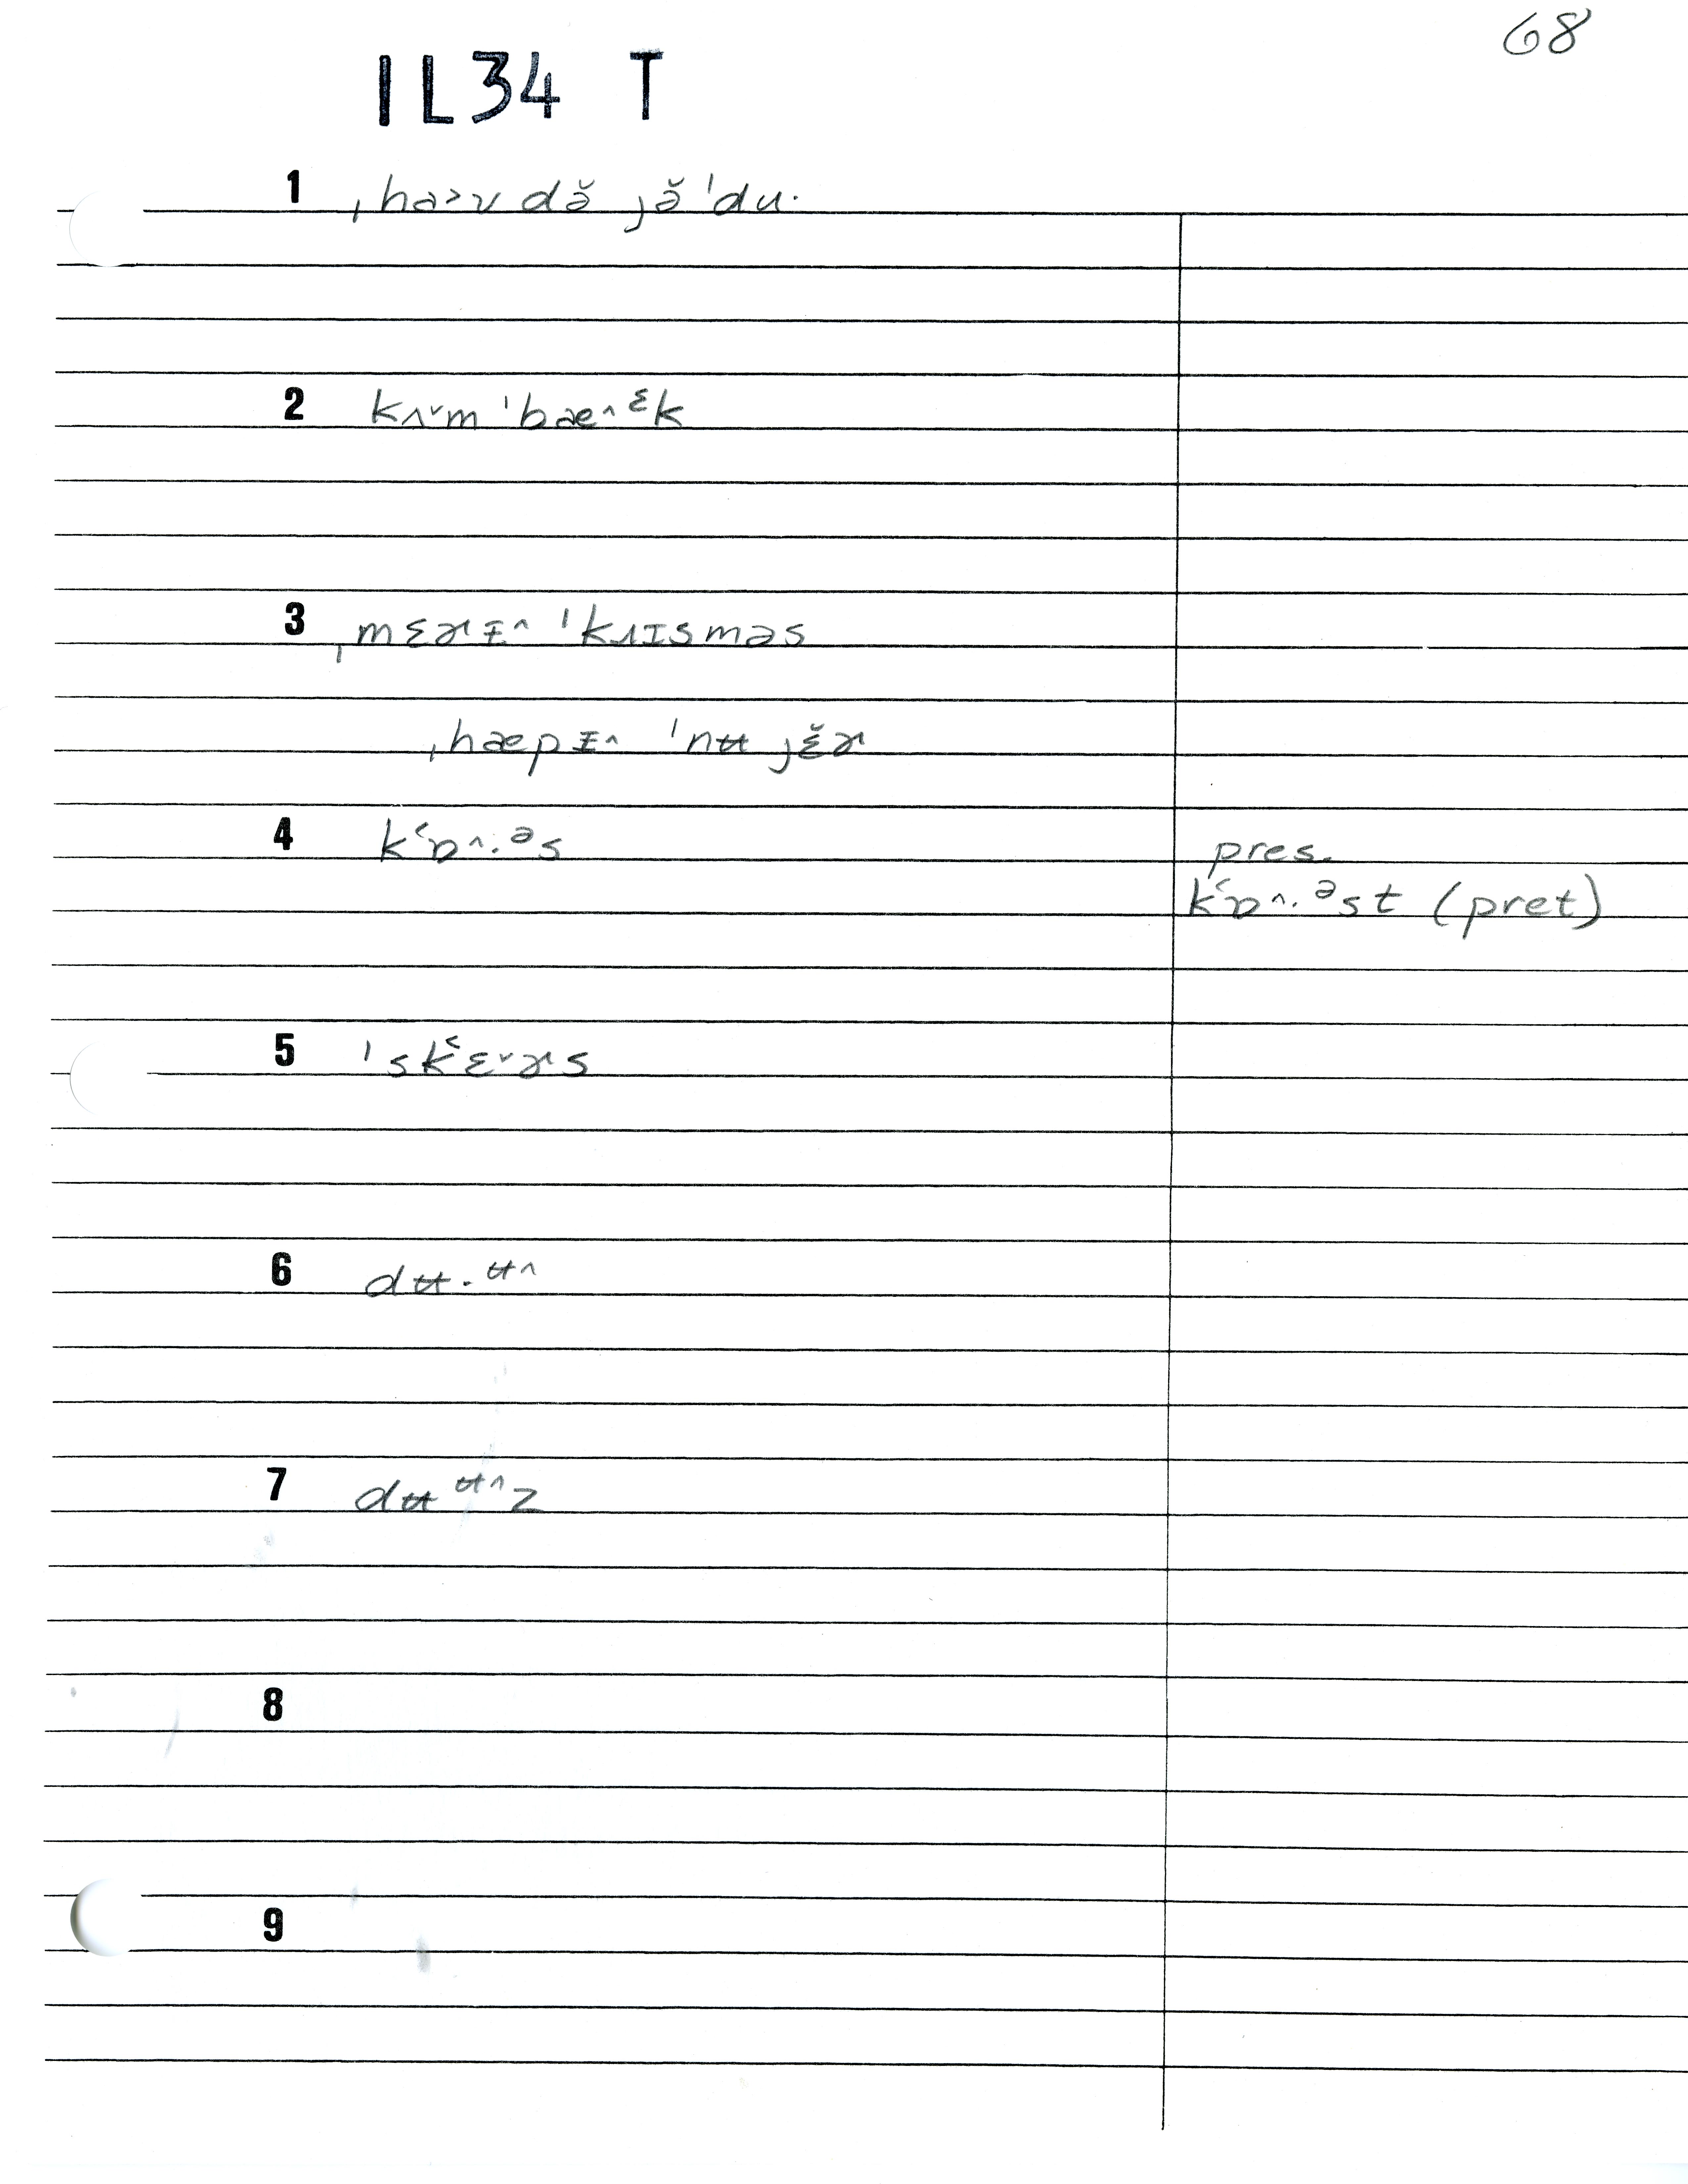 68
IL34 T
1 ˌhɑ˃v də̆ jə̆ ˈdu·
2 kʌ˅m ˈbæ˄ᵋk
3 ˌmɛɚɪ̵˄ ˈkɹɪsməs
ˌhæpɪ̵˄ ˈnʉ jɛ̆ɚ
4 k‘ɒ˄·ᵊs
pres.
k‘ɒ˄·ᵊst (pret)
5 ˈsk‘ɛ˅ɚs
6 dʉ·ᶶ˄
7 dʉᶶ˄z
8
9